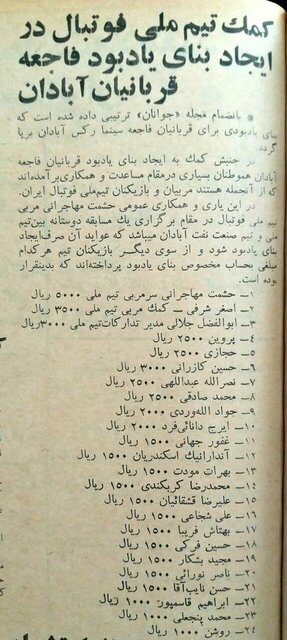 کمك تیم ملی فوتبال در
ایجاد بنای یادبود فاجعه
قربانیان آبادان
* بانضمام مجله «جوانان» ترتیبی داده شده است که
بنای یادبودی برای قربانیان فاجعه سینما رکس آبادان برپا
گردد.
در جنبش کمك به ایجاد بنای یادبود قربانیان فاجعه
آبادان هموطنان بسیاری درمقام مساعدت و همکاری برآمده‌اند
که از آنجمله هستند مربیان و بازیکنان تیم‌ملی فوتبال ایران.
در این یاری و همکاری عمومی حشمت مهاجرانی مربی
تیم ملی فوتبال در مقام برگزاری یك مسابقه دوستانه بین‌تیم
ملی و تیم صنعت نفت آبادان میباشد که عواید آن صرف‌ایجاد
بنای یادبود شود و از سوی دیگر بازیکنان تیم هرکدام
مبلغی بحساب مخصوص بنای یادبود پرداخته‌اند که بدینقرار
بوده است.
۱ــ حشمت مهاجرانی سرمربی تیم ملی ۵۰۰۰ ریال
۲ــ اصغر شرفی ــ کمك مربی تیم ملی ۳۵۰۰ ریال
۳ــ ابوالفضل جلالی مدیر تدارکات‌تیم ملی ۳۰۰۰ریال
۴ــ پروین ۲۵۰۰ ریال
۵ــ حجازی ۲۵۰۰ ریال
۶ــ حسین کازرانی ۳۰۰۰ ریال
۷ــ نصرالله عبداللهی ۲۵۰۰ ریال
۸ــ محمد صادقی ۲۵۰۰ ریال
۹ــ جواد الله‌وردی ۲۰۰۰ ریال
۱۰ــ ایرج دانائی‌فرد ۲۰۰۰ ریال
۱۱ــ غفور جهانی ۱۵۰۰ ریال
۱۲ــ آندارانیك اسکندریان ۱۵۰۰ ریال
۱۳ــ بهرات مودت ۱۵۰۰ ریال
۱۴ــ محمدرضا کریکندی ۱۵۰۰ ریال
۱۵ــ علیرضا قشقائیان ۱۵۰۰ ریال
۱۶ــ علی شجاعی ۱۵۰۰ ریال
۱۷ــ بهتاش فریبا ۱۵۰۰ ریال
۱۸ــ حسین فرکی ۱۵۰۰ ریال
۱۹ــ مجید بشکار ۱۵۰۰ ریال
۲۰ــ ناصر نورائی ۱۵۰۰ ریال
۲۱ــ حسن نایب‌آقا ۱۵۰۰ ریال
۲۲ــ ابراهیم قاسمپور ۱۰۰۰ ریال
۲۳ــ محمد پنجعلی ۱۰۰۰ ریال
۲۴ــ روشن ۱۰۰۰ ریال